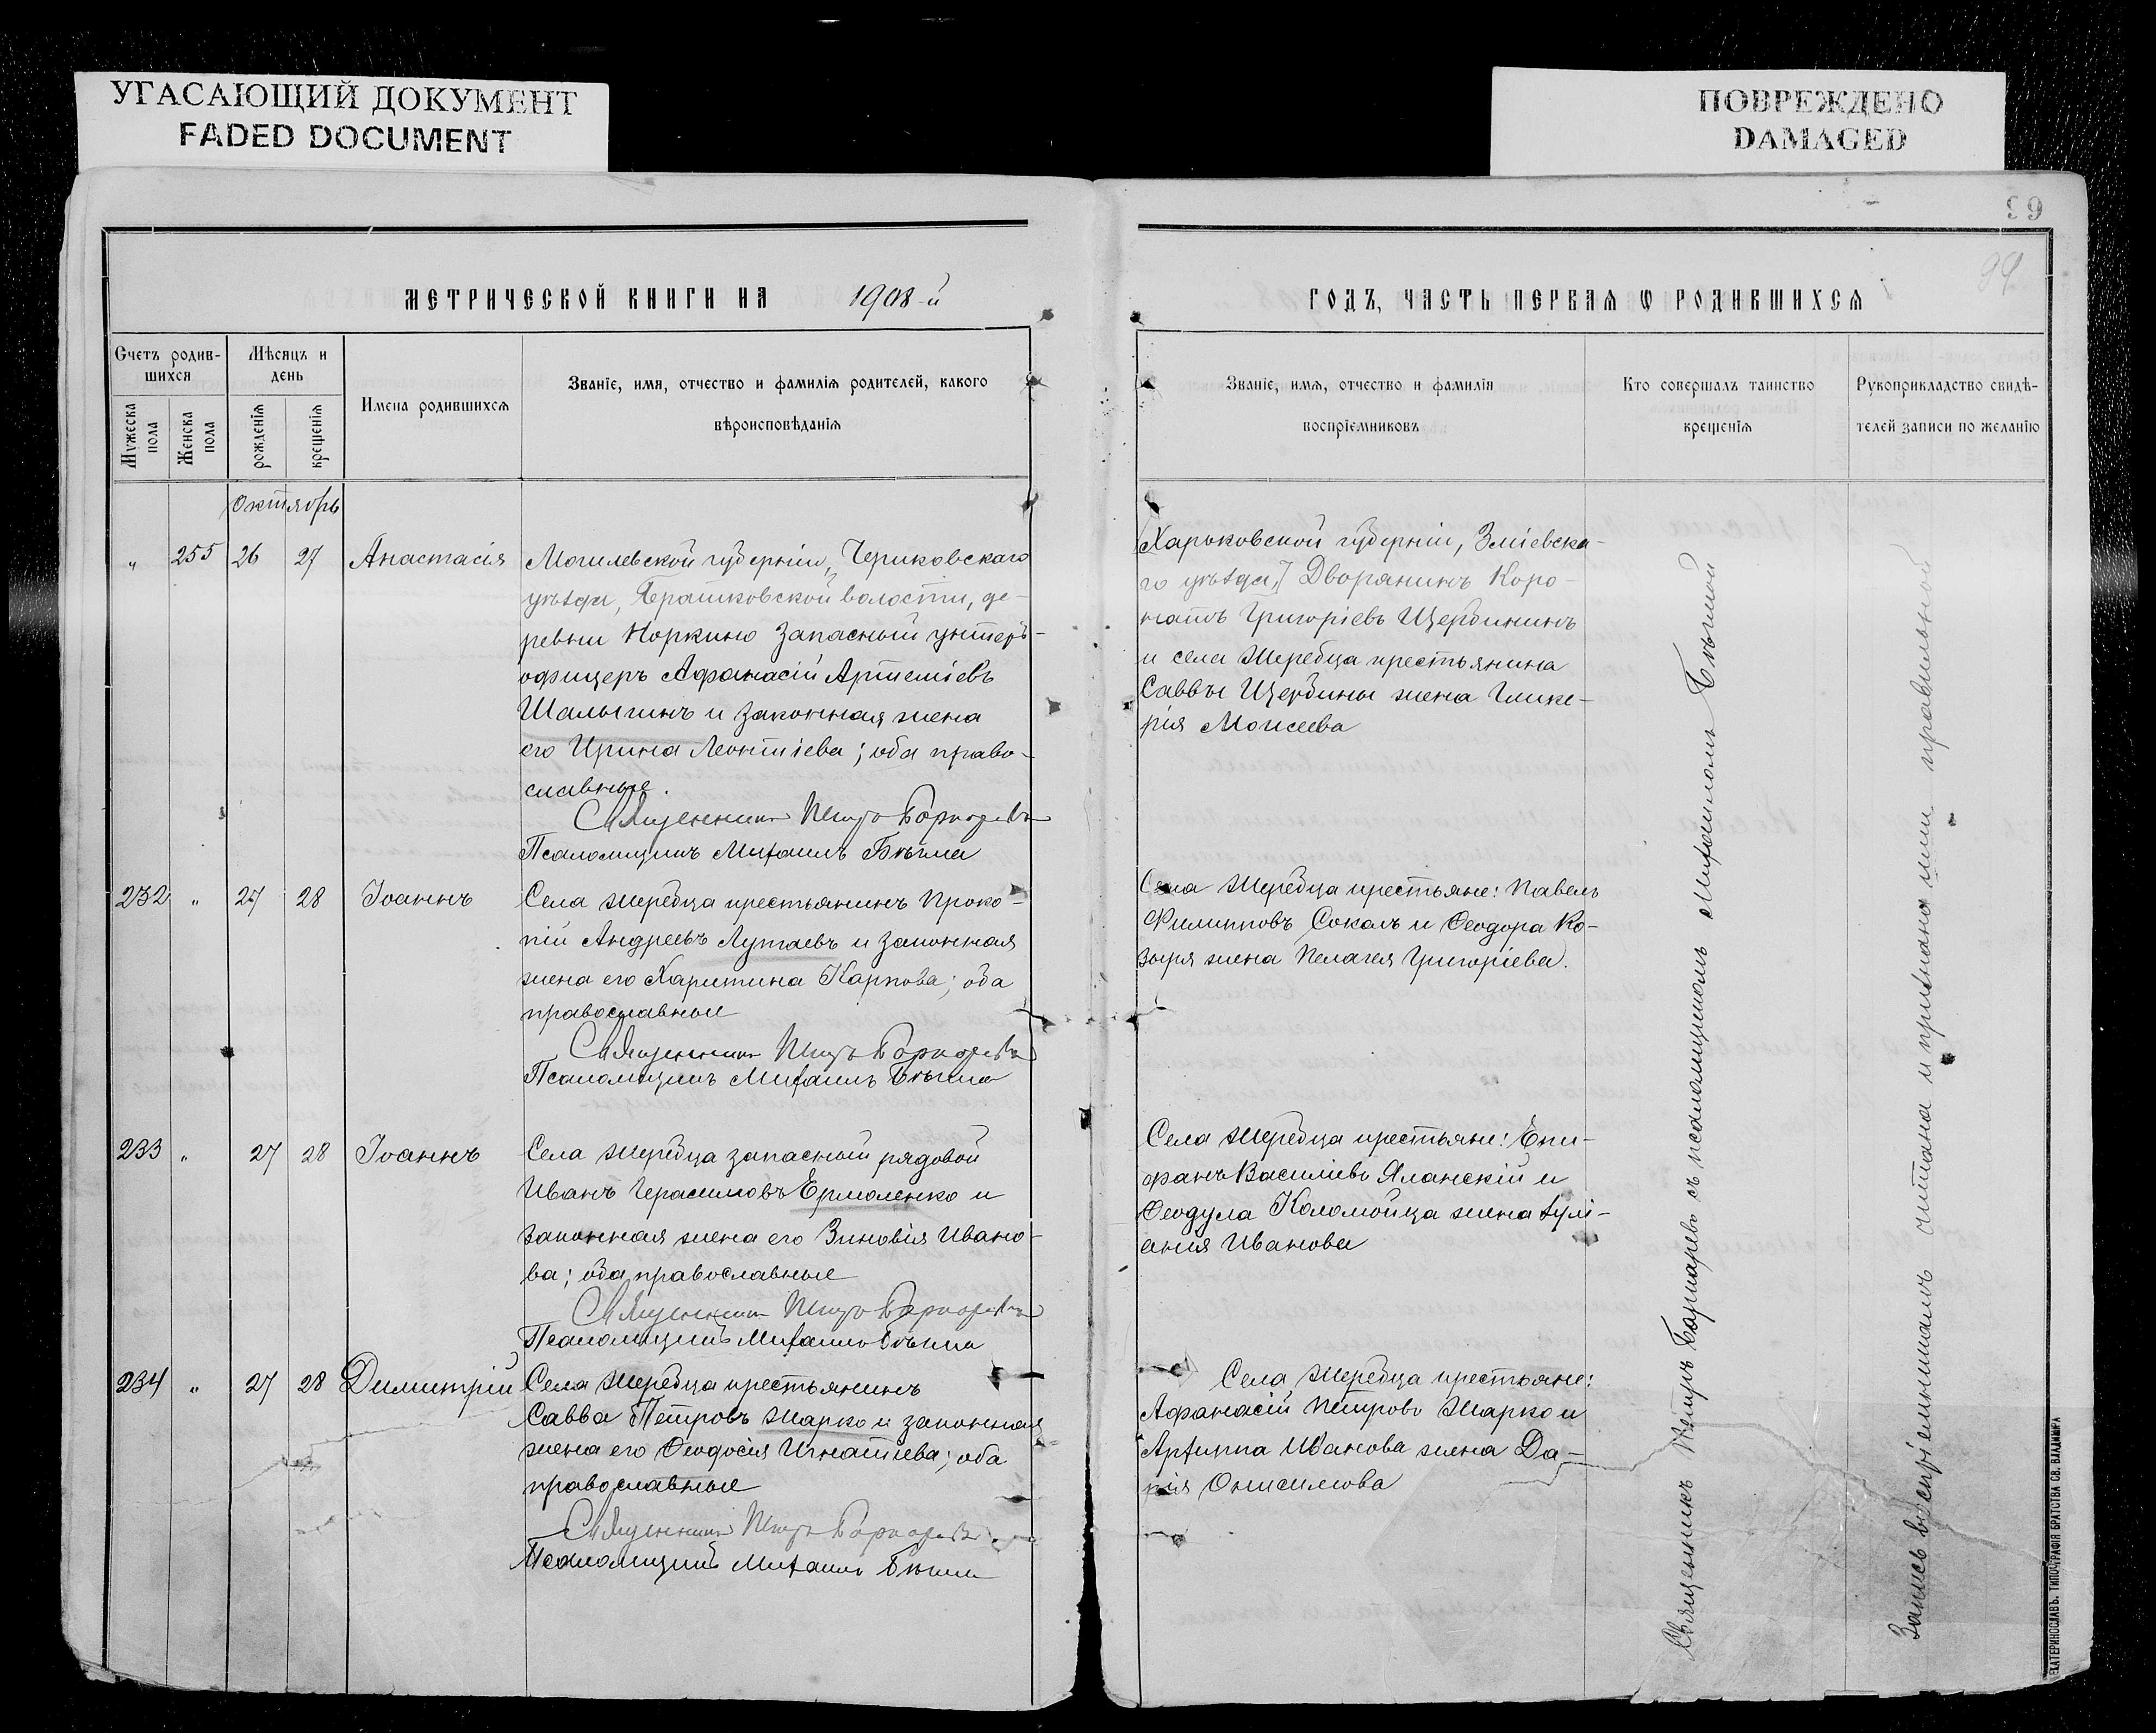 УГАСАЮЩИЙ ДОКУМЕНТ
FADED DOCUMENT
ПОВРЕЖДЕНО
DAMAGED
99
МЕТРИЧЕСКОЙ КНИГИ НА 1908-й
Счетъ родив-
шихся
Мужеска
пола
Женска
пола
Мѣсяцъ и
день
рожденія
крещенія
Имена родившихся
Званіе, имя, отчество и фамилія родителей, какого
вѣроисповѣданія
Октябрь
„ 255 26 27 Анастасія
Могилевской губерніи, Чериковскаго
уѣзда, волости, де-
ревни Норкино запасный унтеръ-
офицеръ Афанасій Артеміевъ
Шалыгинъ и законная жена
его Ирина Леонтіева; оба право-
славные.
Священникъ Петръ
Псаломщикъ Михаилъ
232 „ 27 28 Іоаннъ
Села Жеребца крестьянинъ Проко-
пій Андреевъ Лутаевъ и законная
жена его Харитина Карпова; оба
православные
Священникъ Петръ
Псаломщикъ Михаилъ
233 „ 27 28 Іоаннъ
Села Жеребца запасный рядовой
Иванъ Герасимовъ Ермоленко и
законная жена его Зиновія Ивано-
ва; оба православные
Священникъ Петръ
Псаломщикъ Михаилъ
234 „ 27 28 Димитрій
Села Жеребца крестьянинъ
Савва Петровъ Жарко и законная
жена его Ѳеодосія Игнатіева; оба
православные
Священникъ Петръ
Псаломщикъ Михаилъ
ГОДЪ, ЧАСТЬ ПЕРВАЯ Ѡ РОДИВШИХСЯ
Званіе, имя, отчество и фамилія
воспріемниковъ
Кто совершалъ таинство
крещенія
Рукоприкладство свидѣ-
телей записи по желанію
Харьковской губерніи, Зміевска-
го уѣзда, Дворянинъ Коро-
натъ Григоріевъ Щербининъ
и села Жеребца крестьянина
Саввы Щербины жена Глике-
рія Моисеева
Села Жеребца крестьяне: Павелъ
Филипповъ Соколъ и Ѳеодора Ко-
зыря жена Пелагея Григоріева.
Села Жеребца крестьяне: Епи-
фанъ Василіевъ Яланскій и
Ѳеодула Коломойца жена Іулі-
анія Иванова
Села Жеребца крестьяне:
Афанасій Петровъ Жарко и
Архиппа Иванова жена Да-
рія Онисимова
Священникъ Петръ съ псаломщикомъ Михаиломъ
Запись воспріемникамъ читана и признана ими правильной
ЕКАТЕРИНОСЛАВЪ. ТИПОГРАФІЯ БРАТСТВА СВ. ВЛАДИМІРА